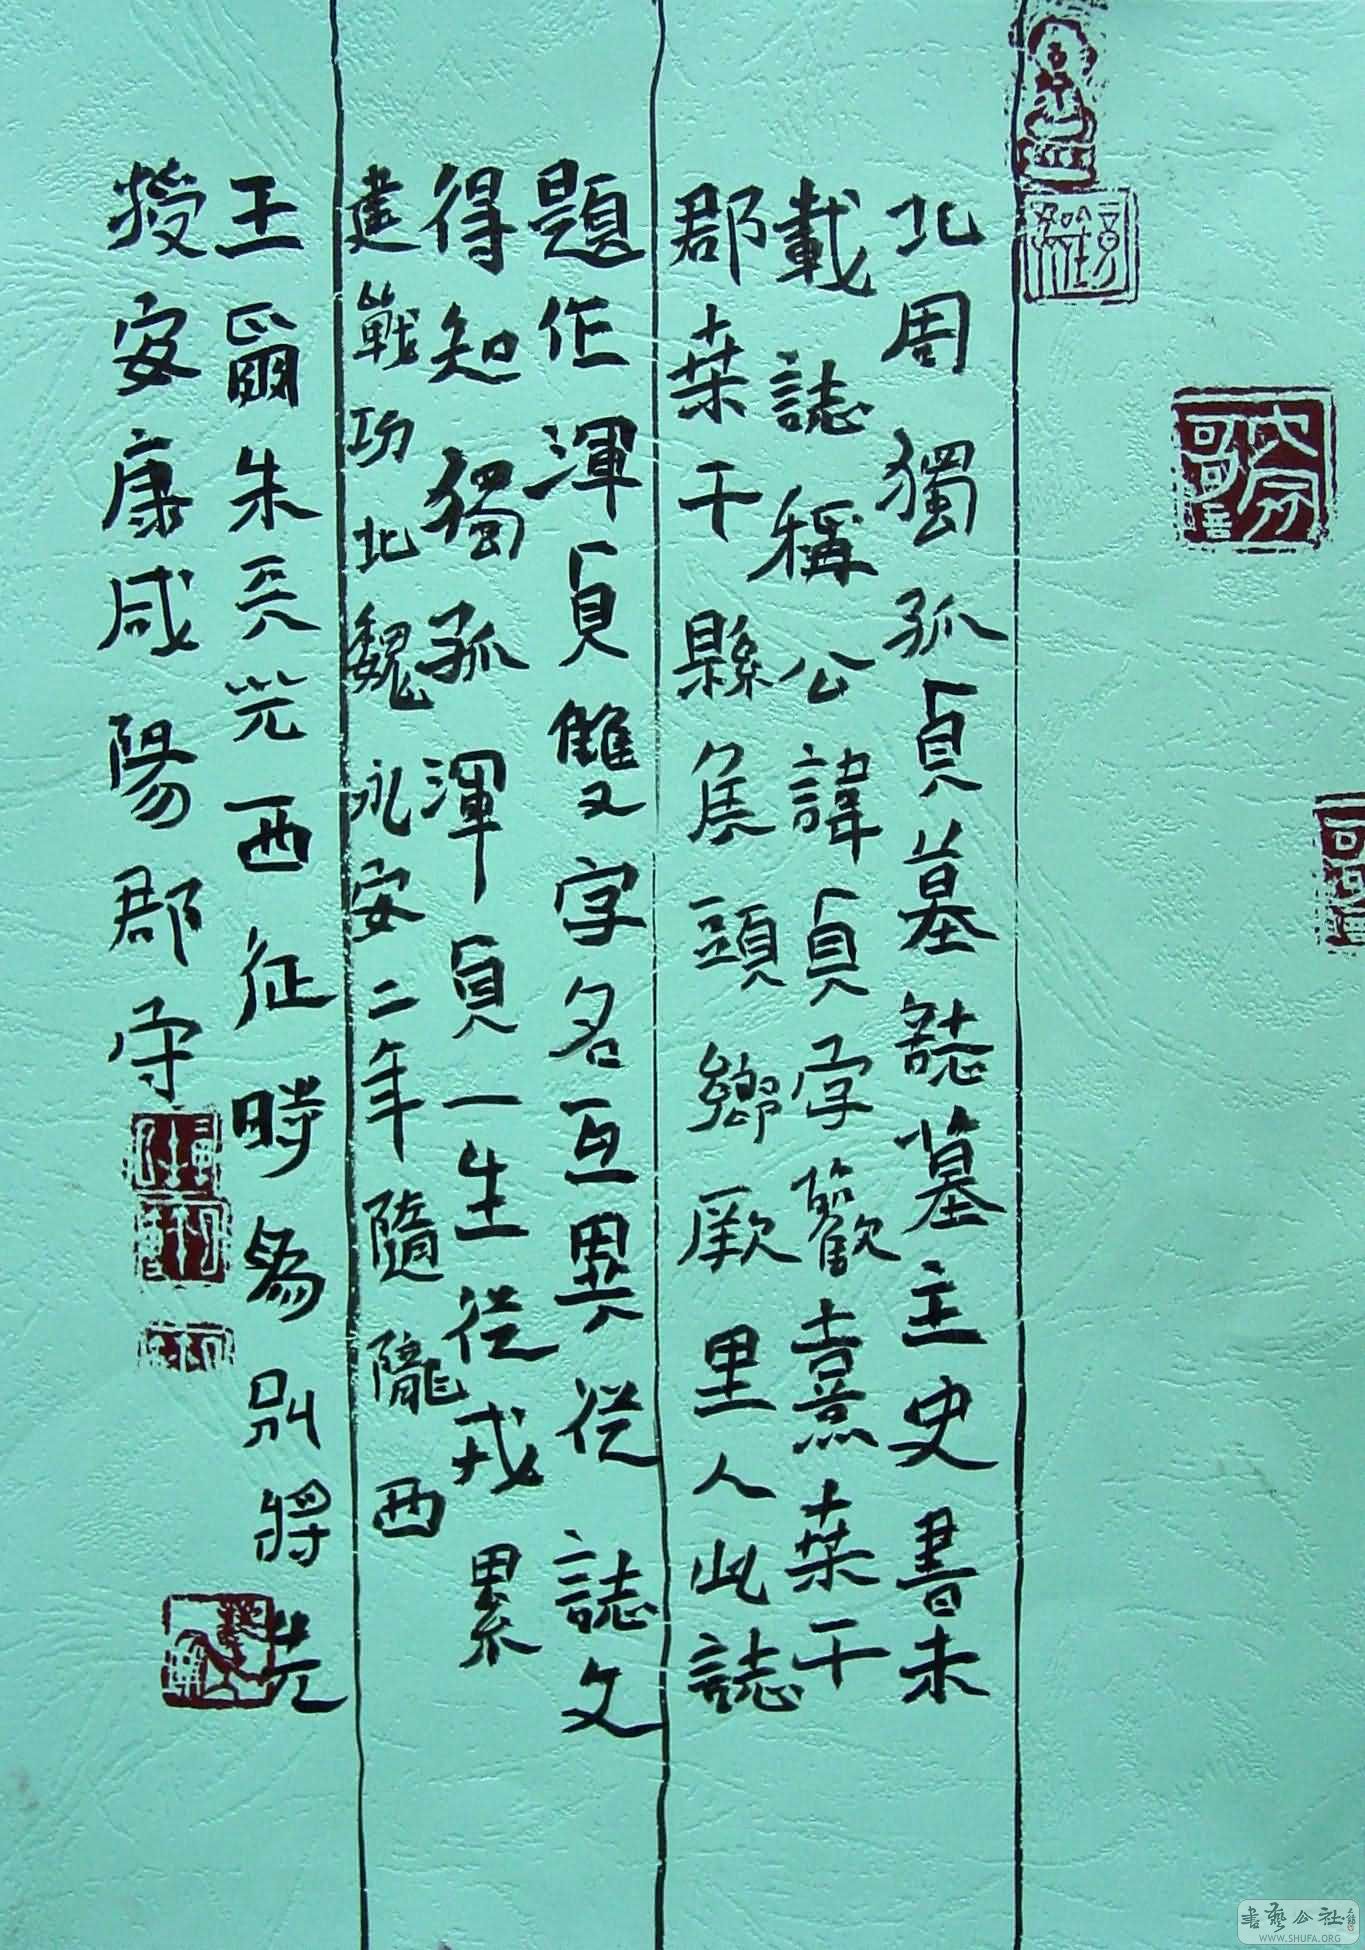 北周獨孤貞墓誌墓主史書未
載誌稱公諱貞字歡憙桑干
郡桑干縣侯頭鄉厥里人此誌
題作渾貞雙字名互異從誌文
得知獨孤渾貞一生從戎累
建戰功北魏永安二年隨隴西
王爾朱天光西征時為別將先
授安康咸陽郡守
書藝公社
WWW.SHUFA.ORG